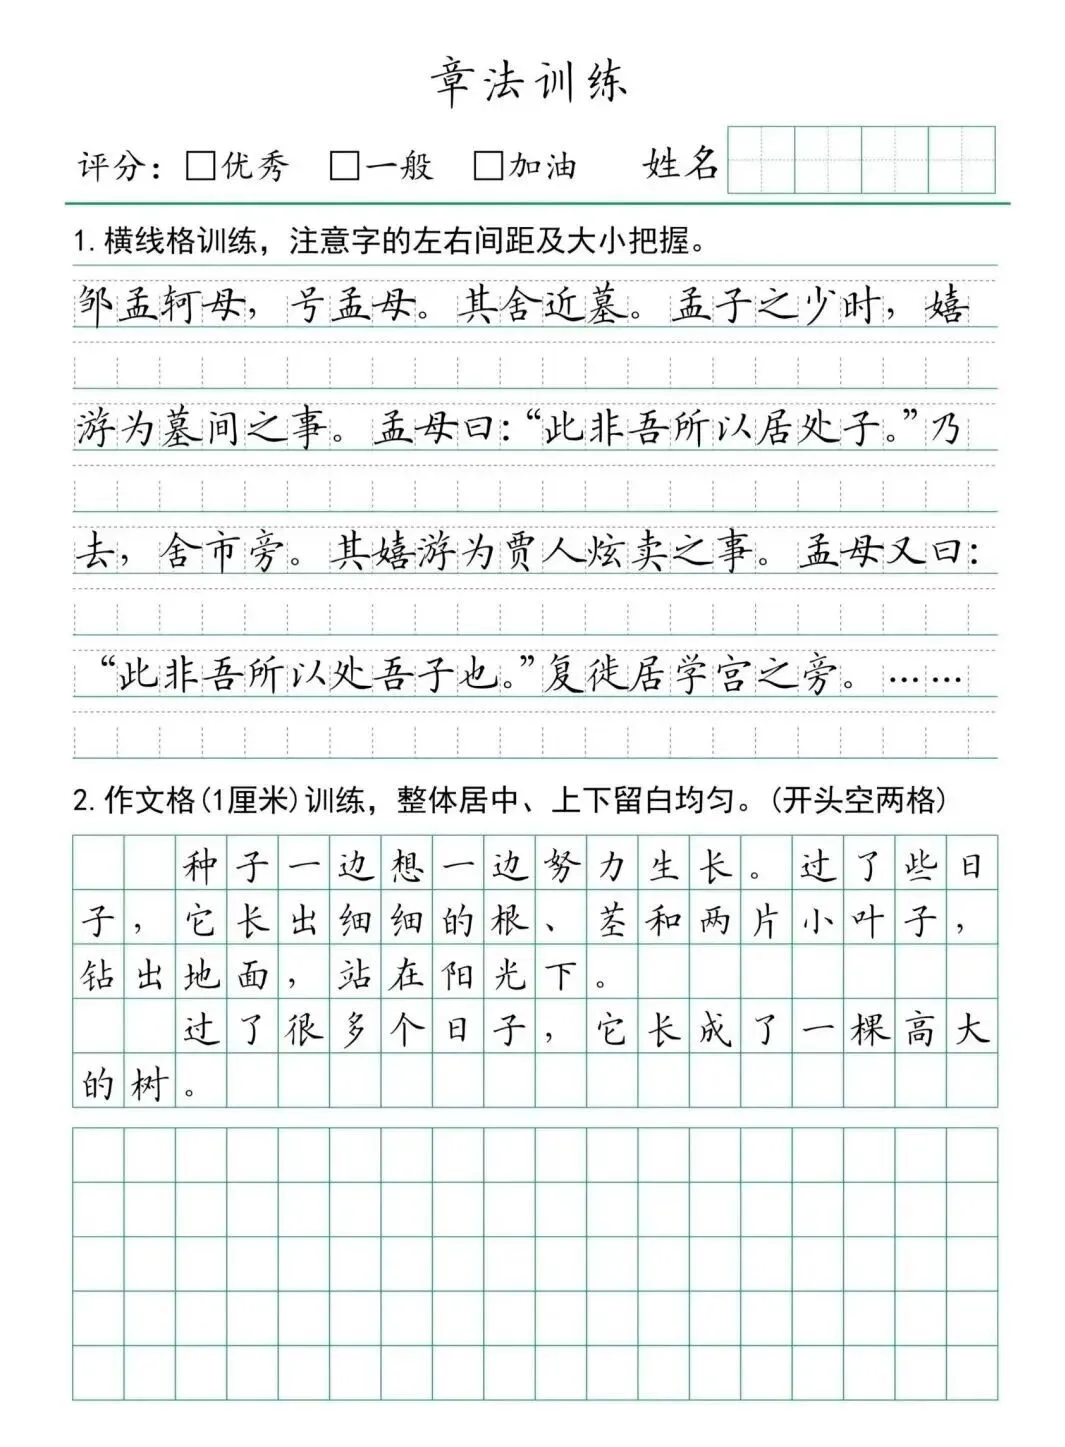 章法训练
评分：□优秀 □一般 □加油 姓名
1.横线格训练，注意字的左右间距及大小把握。
邹孟轲母，号孟母。其舍近墓。孟子之少时，嬉
游为墓间之事。孟母曰：“此非吾所以居处子。”乃
去，舍市旁。其嬉游为贾人炫卖之事。孟母又曰：
“此非吾所以处吾子也。”复徙居学宫之旁。……
2.作文格(1厘米)训练，整体居中、上下留白均匀。(开头空两格)
种子一边想一边努力生长。过了些日
子，它长出细细的根、茎和两片小叶子，
钻出地面，站在阳光下。
过了很多个日子，它长成了一棵高大
的树。